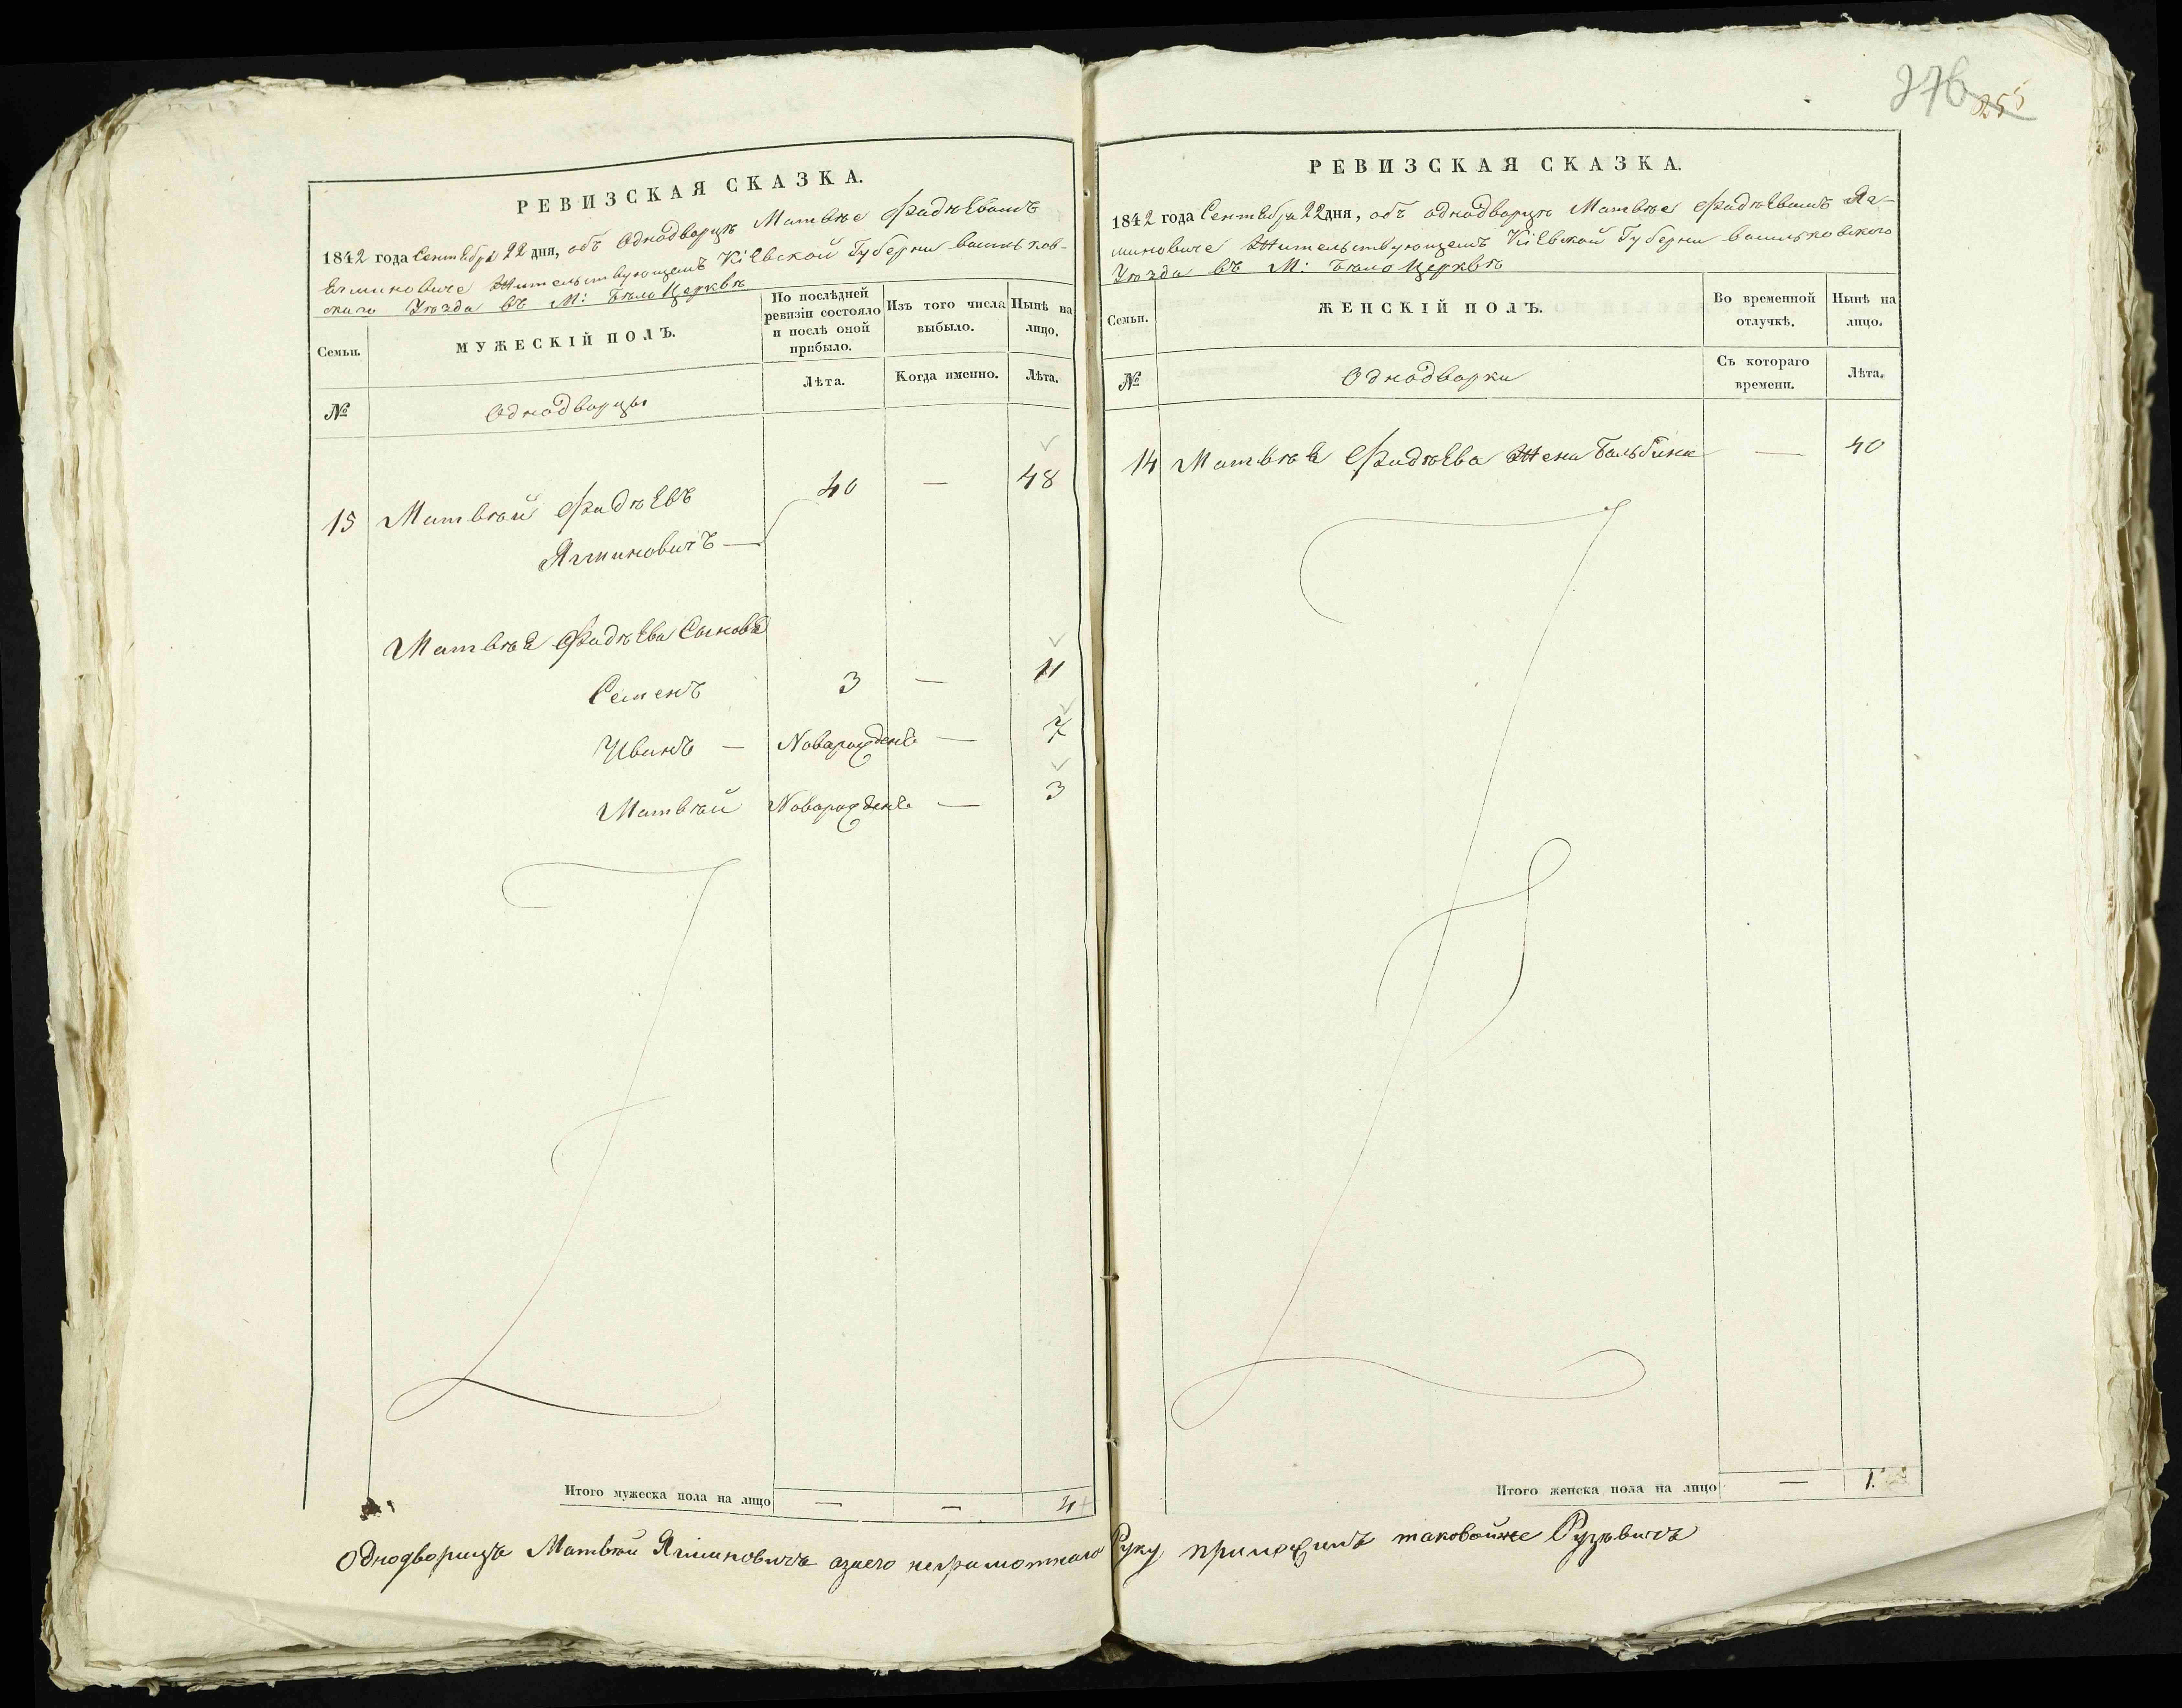 РЕВИЗСКАЯ СКАЗКА.
1842 года Сентября 22 дня, объ Однодворцѣ Матвѣе Фадѣевомъ
Ягминовиче Жительствующемъ Кіевской Губерни Васильков-
скаго Уѣзда въ М: Бѣло Церквѣ
Семьи.
МУЖЕСКІЙ ПОЛЪ.
По послѣдней
ревизіи состояло
и послѣ оной
прибыло.
Изъ того числа
выбыло.
Нынѣ на
лицо.
№
Однодворцы
Лѣта.
Когда именно.
Лѣта.
15 Матвѣй Фадѣевъ 40 — 48
Ягминовичъ —
Матвѣя Фадѣева Сыновья
Семенъ 3 — 11
Иванъ — Новарожденъ — 7
Матвѣй Новарожденъ — 3
Итого мужеска пола на лицо — — 4
276 255
РЕВИЗСКАЯ СКАЗКА.
1842 года Сентября 22 дня, объ однодворцѣ Матвѣе Фадѣевомъ Яг-
миновиче Жительствующемъ Кіевской Губерни Васильковского
Уѣзда въ М: Бѣло Церквѣ
Семьи.
ЖЕНСКІЙ ПОЛЪ.
Во временной
отлучкѣ.
Нынѣ на
лицо.
№
Однодворки
Съ котораго
времени.
Лѣта.
14 Матвѣя Фадѣева Жена Бальбина — 40
Итого женска пола на лицо — 1.
Однодворицъ Матвѣй Ягминовичъ азаего неграмотнаго Руку приложилъ таковойже